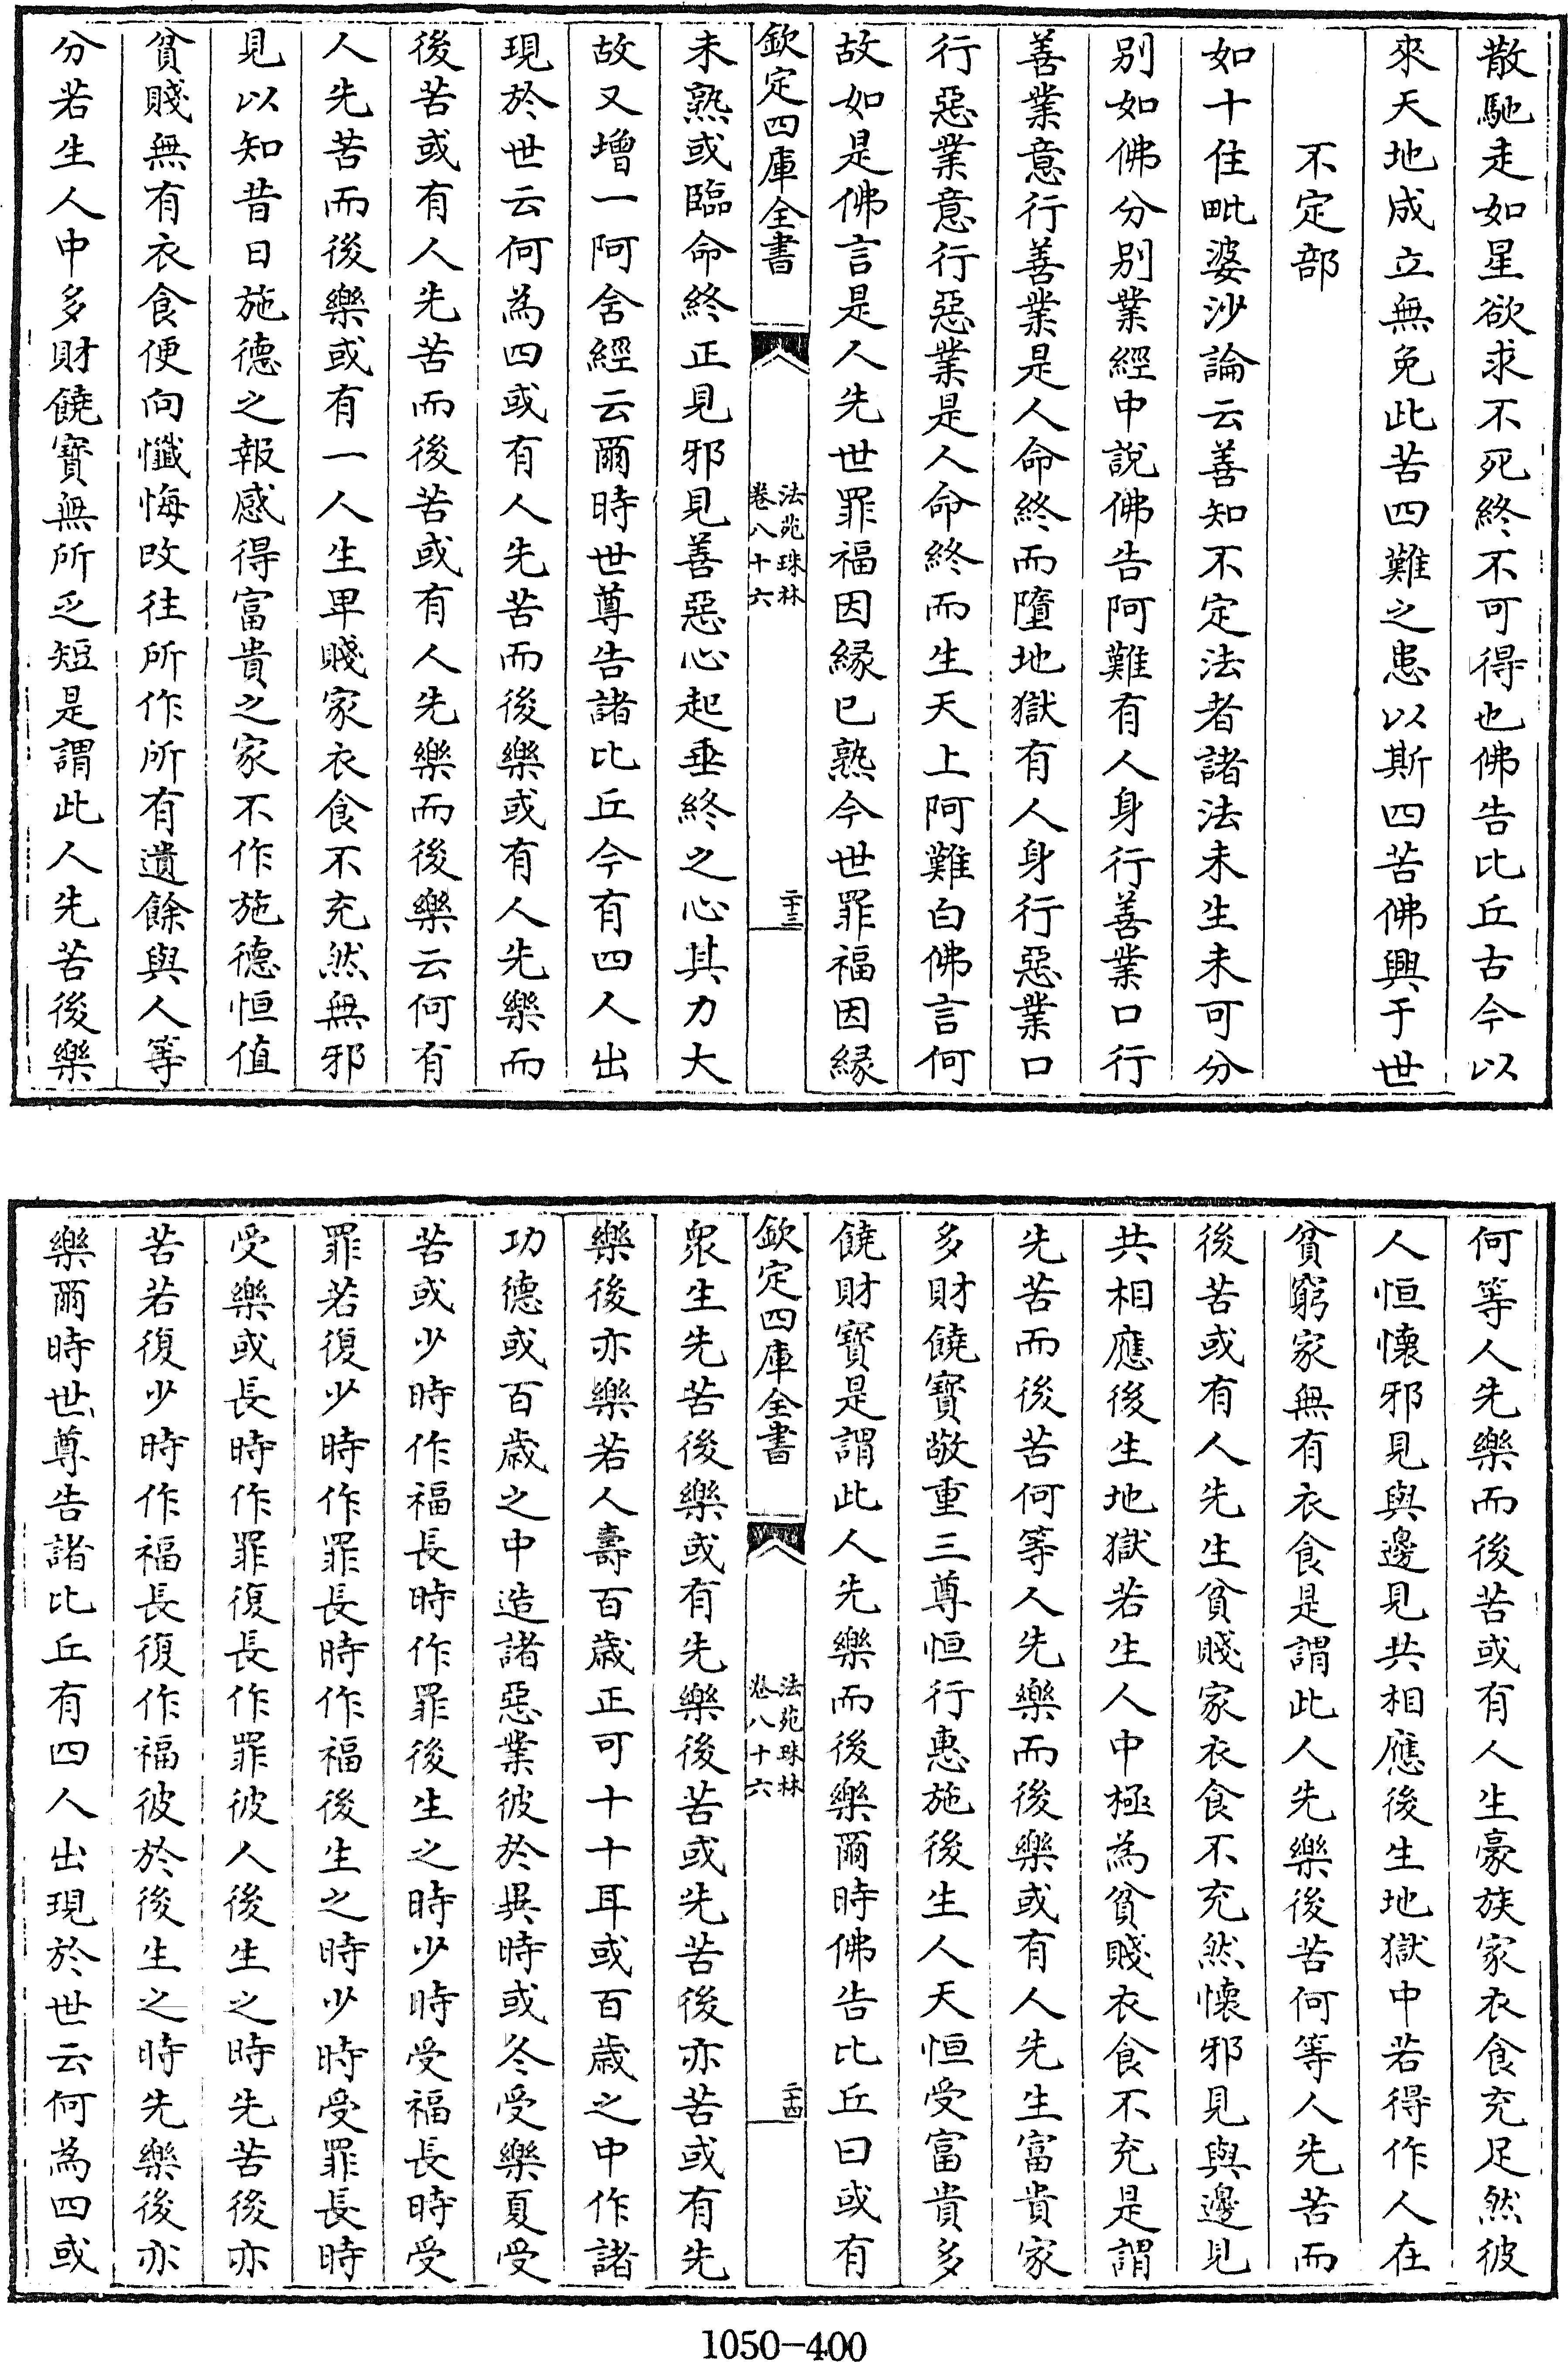 散馳走如星欲求不死終不可得也佛告比丘古今以
來天地成立無免此苦四難之患以斯四苦佛興于世
不定部
如十住毗婆沙論云善知不定法者諸法未生未可分
别如佛分别業經中說佛告阿難有人身行善業口行
善業意行善業是人命終而墮地獄有人身行惡業口
行惡業意行惡業是人命終而生天上阿難白佛言何
故如是佛言是人先世罪福因縁已熟今世罪福因縁
欽定四庫全書
法苑珠林
卷八十六
二十三
未熟或臨命終正見邪見善惡心起垂終之心其力大
故又增一阿舍經云爾時世尊告諸比丘今有四人出
現於世云何為四或有人先苦而後樂或有人先樂而
後苦或有人先苦而後苦或有人先樂而後樂云何有
人先苦而後樂或有一人生卑賤家衣食不充然無邪
見以知昔日施德之報感得富貴之家不作施德恒值
貧賤無有衣食便向懺悔改往所作所有遺餘與人等
分若生人中多財饒寳無所乏短是謂此人先苦後樂
何等人先樂而後苦或有人生豪族家衣食充足然彼
人恒懷邪見與邊見共相應後生地獄中若得作人在
貧窮家無有衣食是謂此人先樂後苦何等人先苦而
後苦或有人先生貧賤家衣食不充然懷邪見與邊見
共相應後生地獄若生人中極為貧賤衣食不充是謂
先苦而後苦何等人先樂而後樂或有人先生富貴家
多財饒寳敬重三尊恒行惠施後生人天恒受富貴多
饒財寳是謂此人先樂而後樂爾時佛告比丘曰或有
欽定四庫全書
法苑珠林
卷八十六
二十四
衆生先苦後樂或有先樂後苦或先苦後亦苦或有先
樂後亦樂若人壽百歲正可十十耳或百歲之中作諸
功德或百歲之中造諸惡業彼於異時或冬受樂夏受
苦或少時作福長時作罪後生之時少時受福長時受
罪若復少時作罪長時作福後生之時少時受罪長時
受樂或長時作罪復長作罪彼人後生之時先苦後亦
苦若復少時作福長復作福彼於後生之時先樂後亦
樂爾時世尊告諸比丘有四人出現於世云何為四或
1050-400